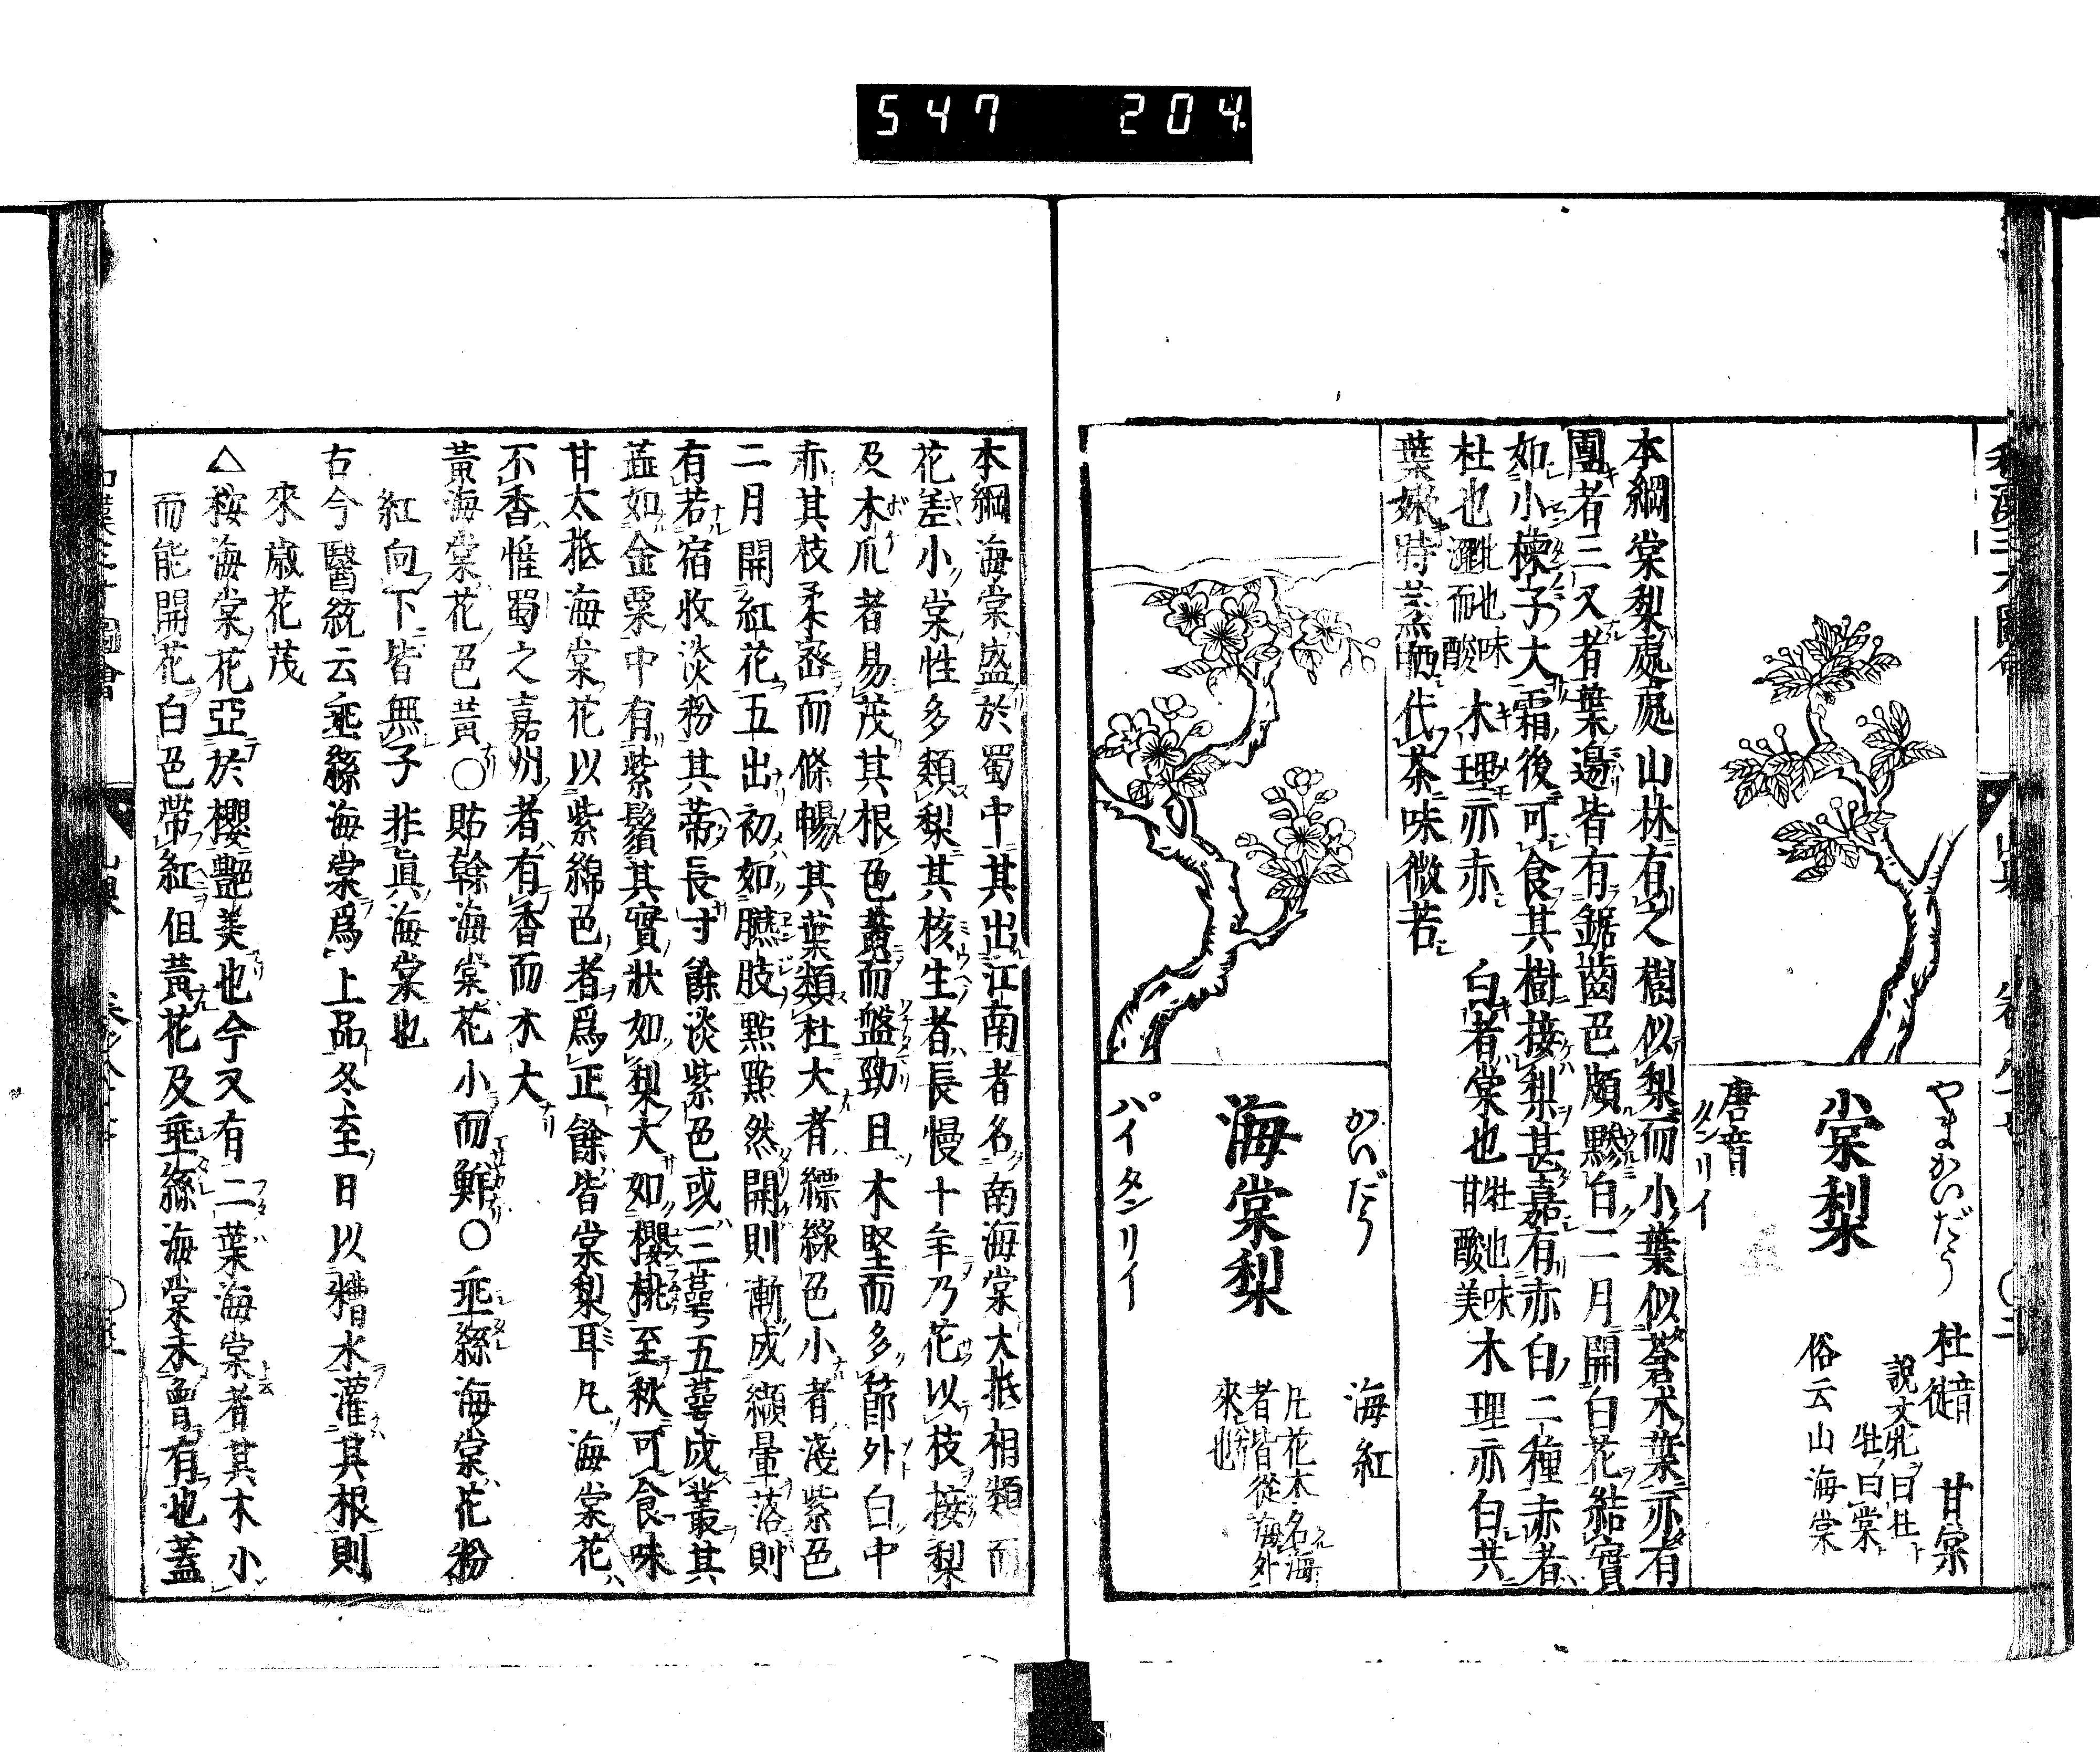 547 204
やまかいだう 杜音徒 甘棠
説文牝曰杜
牡曰棠
棠梨 俗云山海棠
唐音
タンリイ
本綱棠梨處處山林有之樹似梨而小葉似蒼朮葉亦有
團者三叉者葉邊皆有鋸齒色頗黲白二月開白花結實
如小楝子大霜後可食其樹接梨甚嘉有赤白二種赤者
杜也牝也味澀而酸木理亦赤 白者棠也牡也味甘酸美木理亦白共
葉嫩時代茶味微苦
かいだう 海紅
海棠梨 凡花木名海
者皆從海外
來也
パイタンリイ
本綱海棠盛於蜀中其出江南者名南海棠大抵相類而
花差小棠性多類梨其核生者長慢十年乃花以枝接梨
及木瓜者易茂其根色黃而盤勁且木堅而多節外白中
赤其枝柔密而條暢其葉類杜大者縹綠色小者淺紫色
二月開紅花五出初如臙肢點點然開則漸成纈暈落則
有若宿收淡粉其蒂長寸餘淡紫色或三萼五萼成叢其
蕋如金粟中有紫鬚其實狀如梨大如櫻桃至秋可食味
甘大抵海棠花以紫綿色者爲正餘皆棠梨耳凡海棠花
不香惟蜀之嘉州者有香而木大
黃海棠花色黃○貼幹海棠花小而鮮○垂絲海棠花粉
紅向下皆無子非眞海棠也
古今醫統云垂絲海棠爲上品冬至日以糟水灌其根則
來歲花茂
△按海棠花亞於櫻艷美也今又有二葉海棠者其木小
而能開花白色帶紅但黃花及垂絲海棠未曾有也蓋